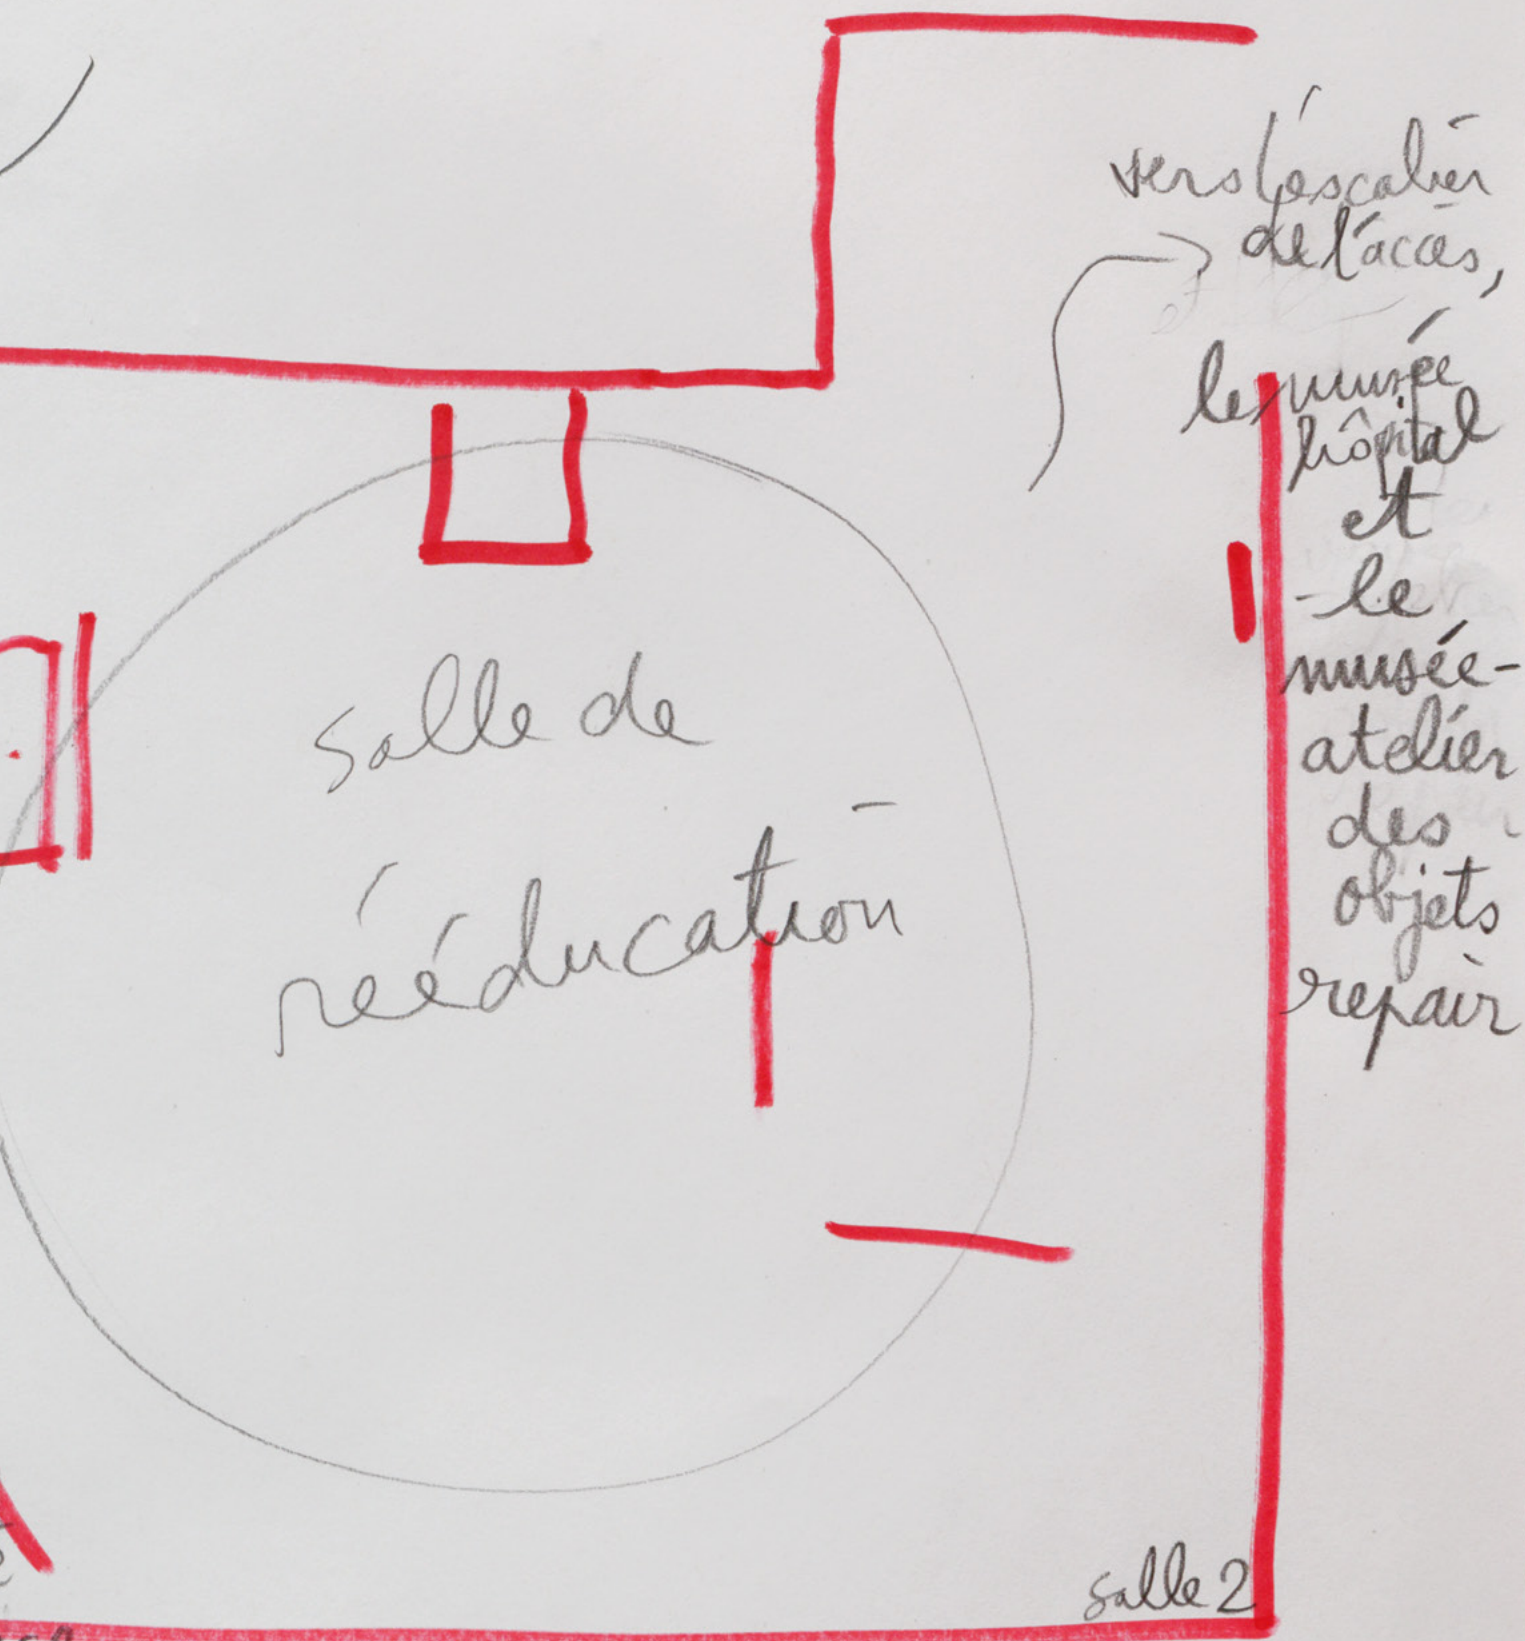 vers l'escalier
de l'accès,
le musée
hôpital
et
-le
musée-
atelier
des
objets
repair
salle de
rééducation
salle 2